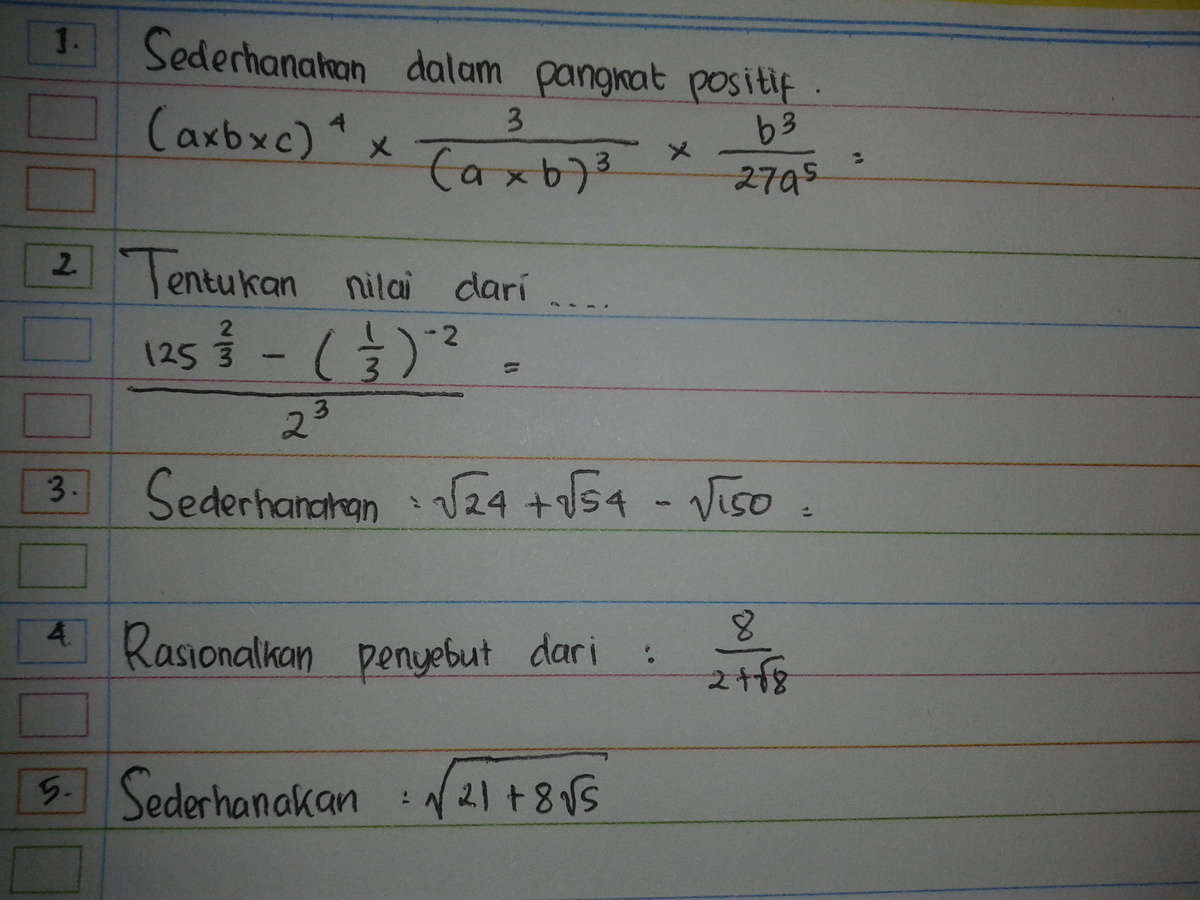 1. Sederhanakan dalam pangkat positif.
(a×b×c)⁴ × 3/(a×b)³ × b³/27a⁵ =
2. Tentukan nilai dari ....
(125^(2/3) - (1/3)⁻²)/2³ =
3. Sederhanakan : √24 + √54 - √150 =
4. Rasionalkan penyebut dari : 8/(2+√8)
5. Sederhanakan : √(21 + 8√5)